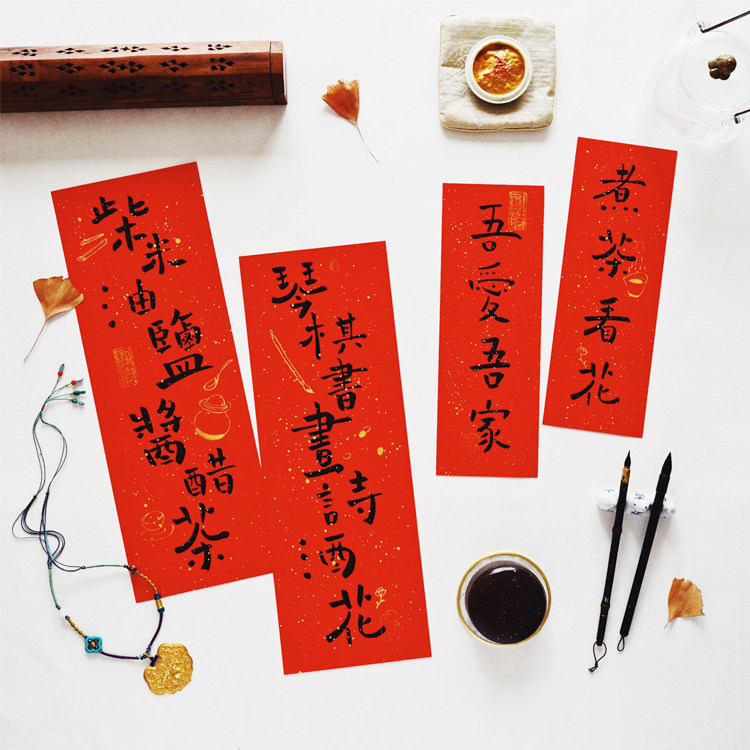 柴米油鹽醬醋茶
琴棋書畫詩酒花
吾愛吾家
煮茶看花